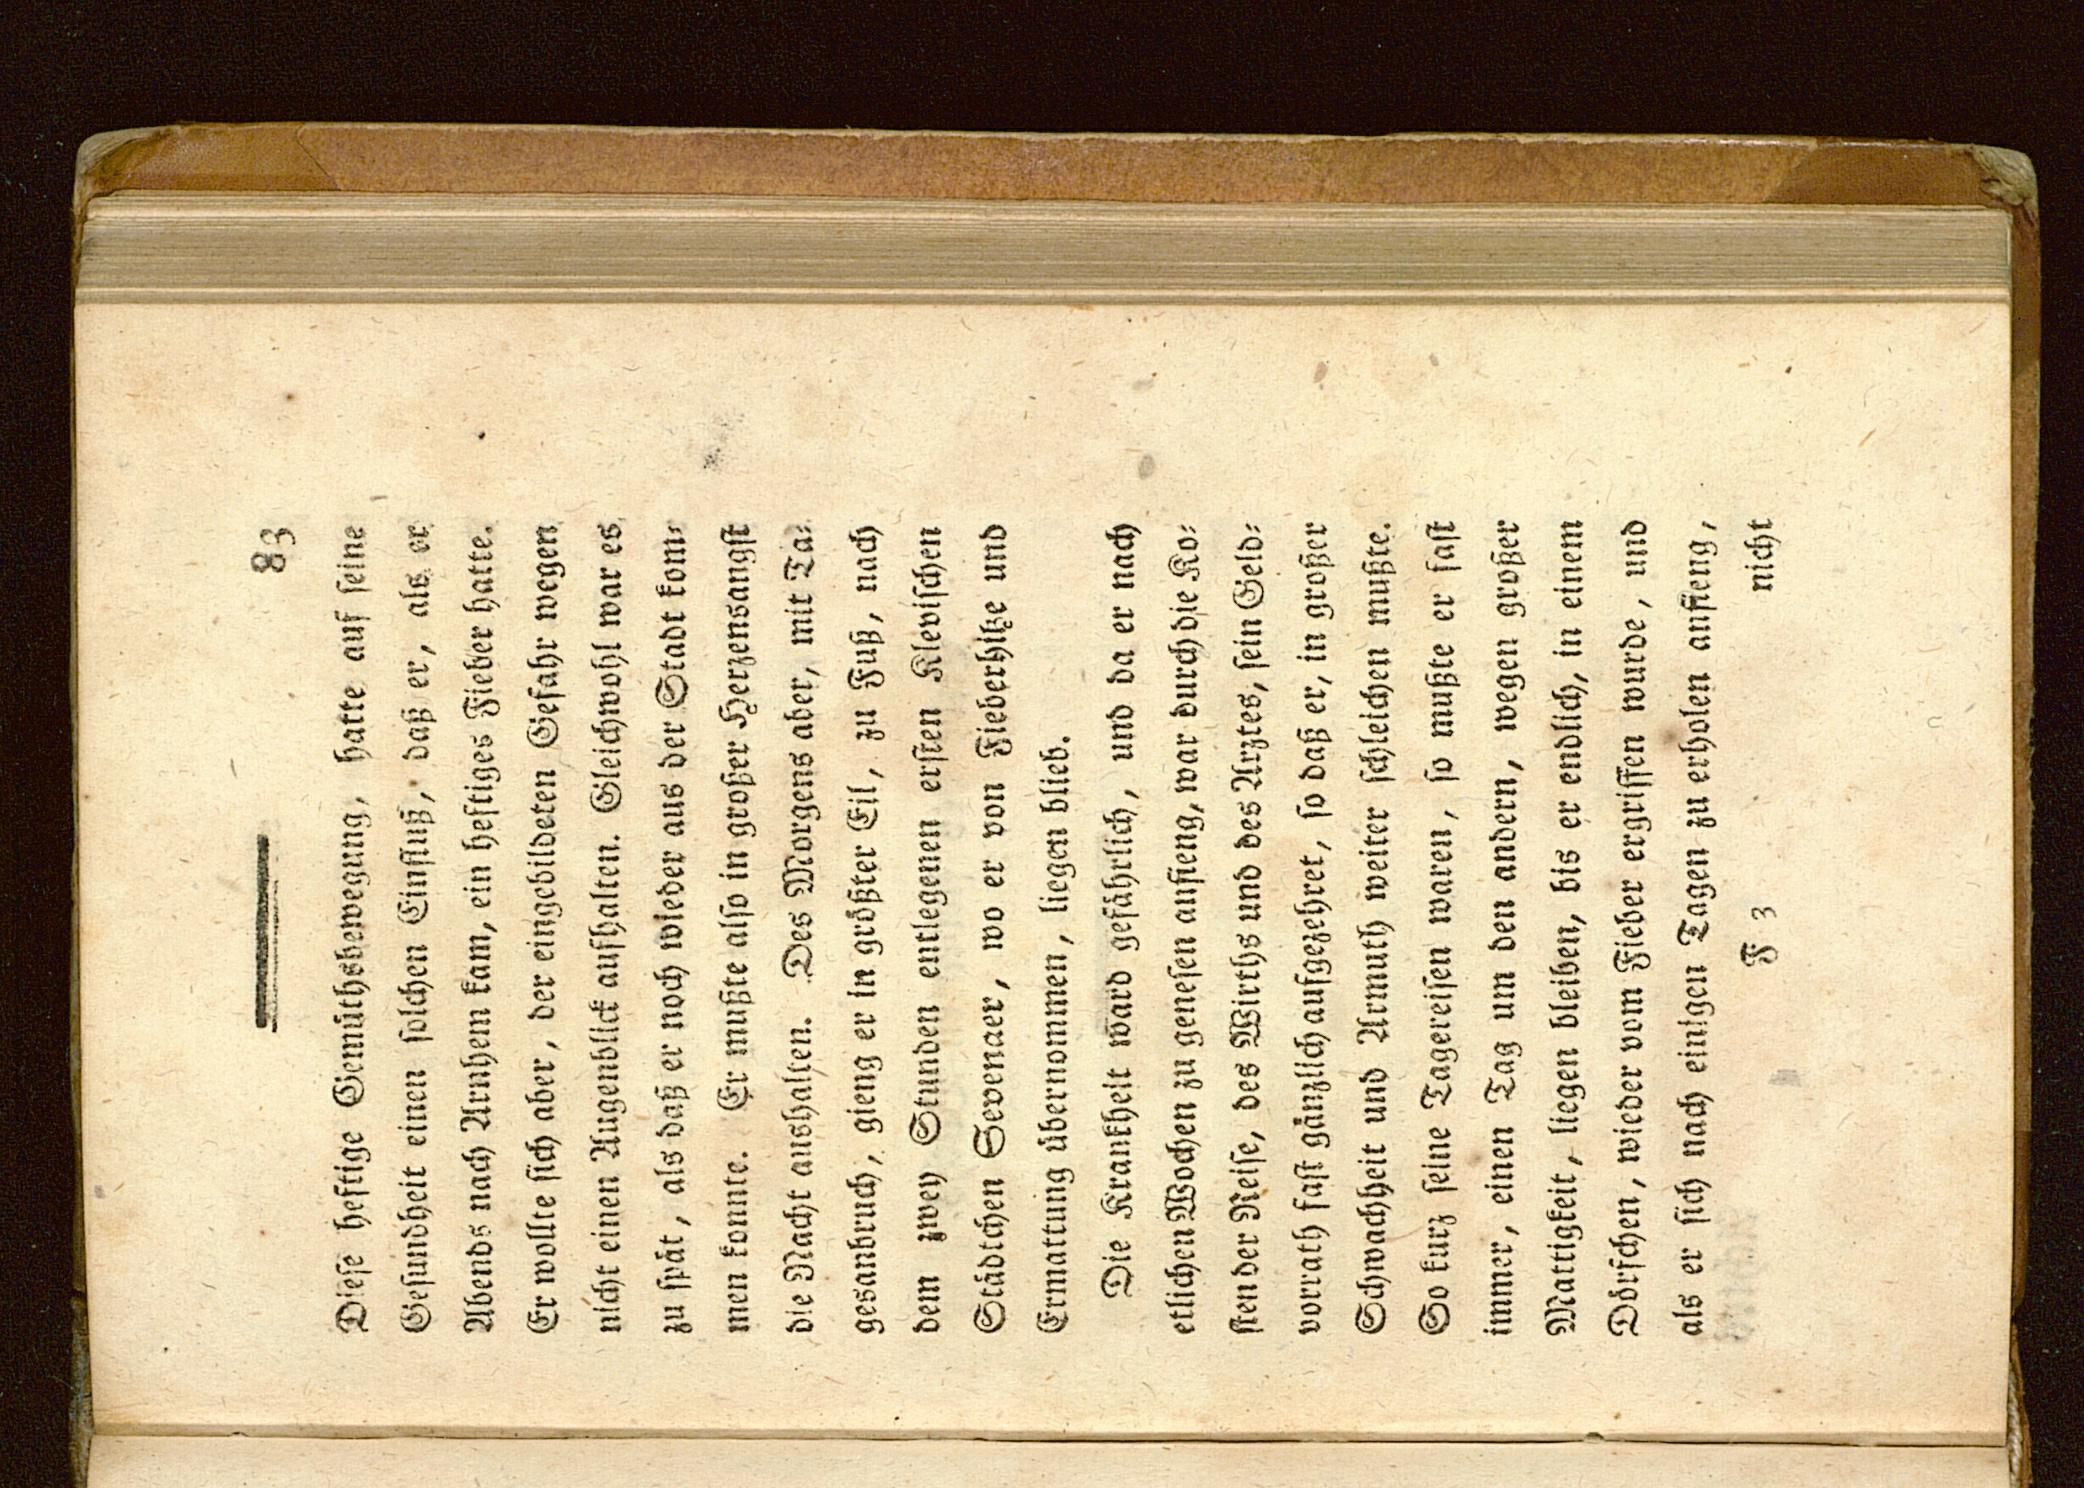 83
Dieſe heftige Gemüthsbewegung, hatte auf ſeine
Geſundheit einen ſolchen Einfluß, daß er, als er
Abends nach Arnhem kam, ein heftiges Fieber hatte.
Er wollte ſich aber, der eingebildeten Gefahr wegen
nicht einen Augenblick aufhalten. Gleichwohl war es
zu ſpät, als daß er noch wieder aus der Stadt kom⸗
men konnte. Er mußte alſo in großer Herzensangſt
die Nacht aushalten. Des Morgens aber, mit Ta⸗
gesanbruch, gieng er in größter Eil, zu Fuß, nach
dem zwey Stunden entlegenen erſten Klevi​ſchen
Städtchen Sevenaer, wo er von Fieberhitze und
Ermattung übernommen, liegen blieb.
Die Krankheit ward gefährlich, und da er nach
etlichen Wochen zu geneſen anfieng, war durch die Ko⸗
ſten der Reiſe, des Wirths und des Arztes, ſein Geld⸗
vorrath faſt gänzlich aufgezehret, ſo daß er, in großer
Schwachheit und Armuth weiter ſchleichen mußte.
So kurz ſeine Tagereiſen waren, ſo mußte er faſt
immer, einen Tag um den andern, wegen großer
Mattigkeit, liegen bleiben, bis er endlich, in einem
Dörfchen, wieder vom Fieber ergriffen wurde, und
als er ſich nach einigen Tagen zu erholen anfieng,
F 3 nicht